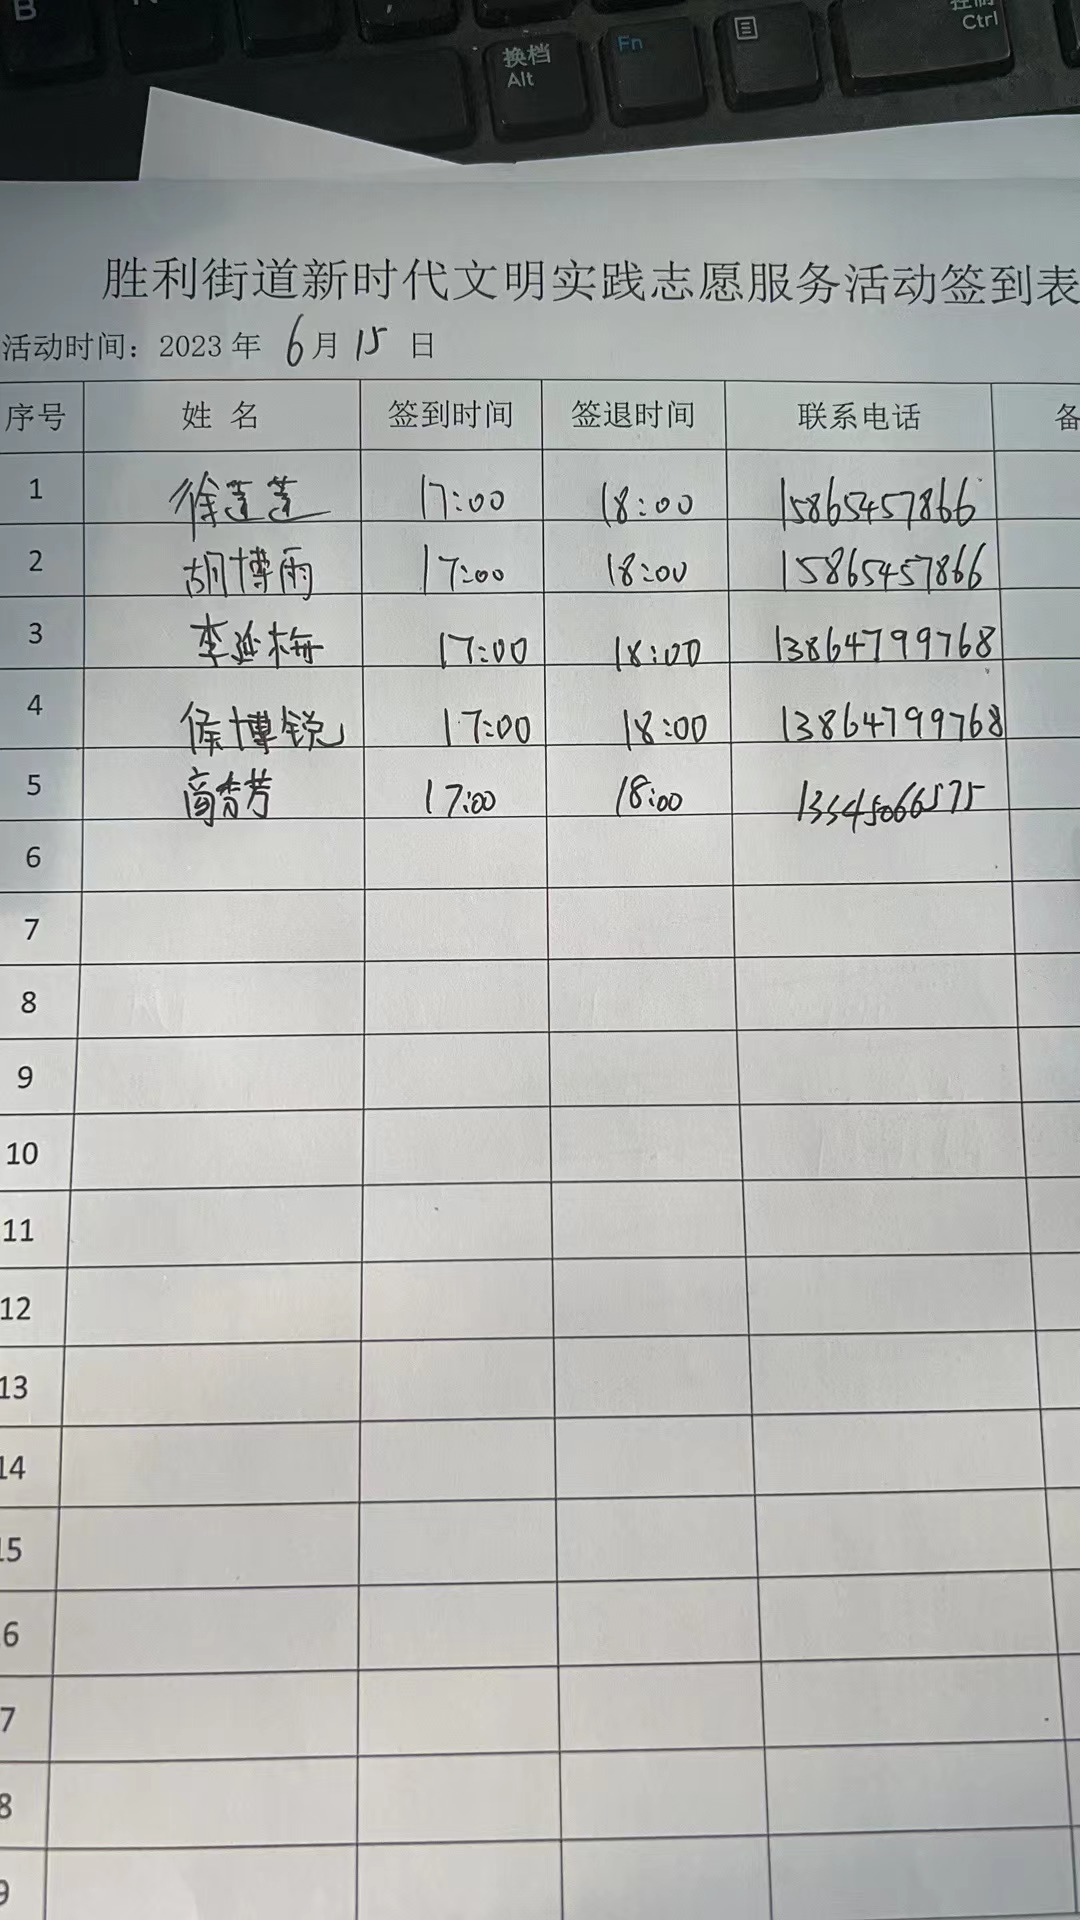 B
换档
Alt
Fn
Ctrl
胜利街道新时代文明实践志愿服务活动签到表
活动时间：2023 年 6 月 15 日
序号 姓 名 签到时间 签退时间 联系电话 备
1 徐莲莲 17:00 18:00 15865457866
2 胡博雨 17:00 18:00 15865457866
3 李延梅 17:00 18:00 13864799768
4 侯博锐 17:00 18:00 13864799768
5 高秀芳 17:00 18:00 13345066575
6
7
8
9
10
11
12
13
14
15
6
7
8
9